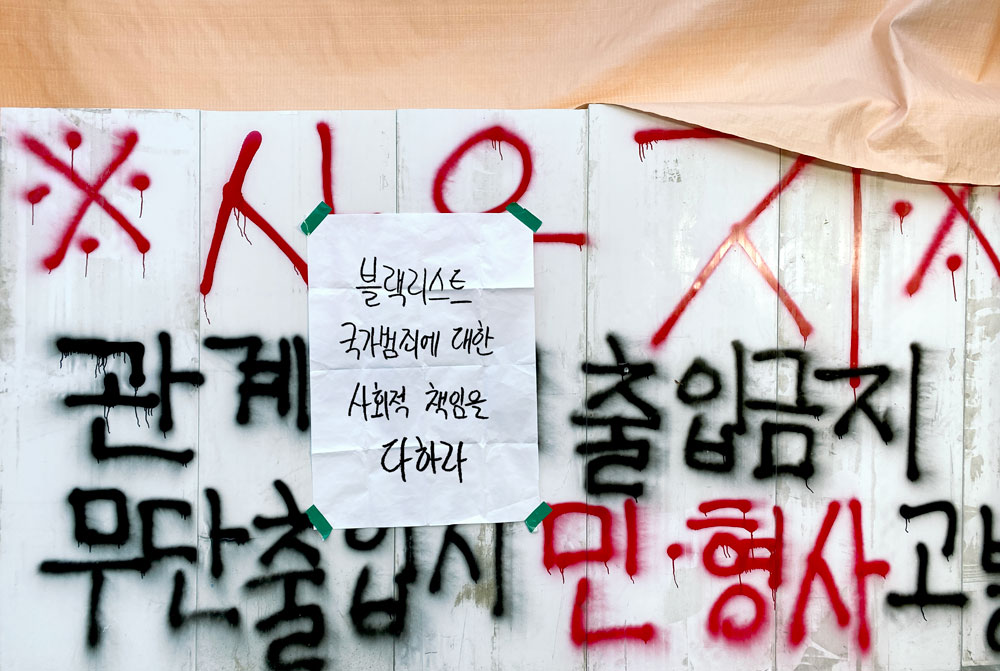 ※ 사유지 ※
블랙리스트
국가범죄에 대한
사회적 책임을
다하라
관계 출입금지
무단출입시 민·형사